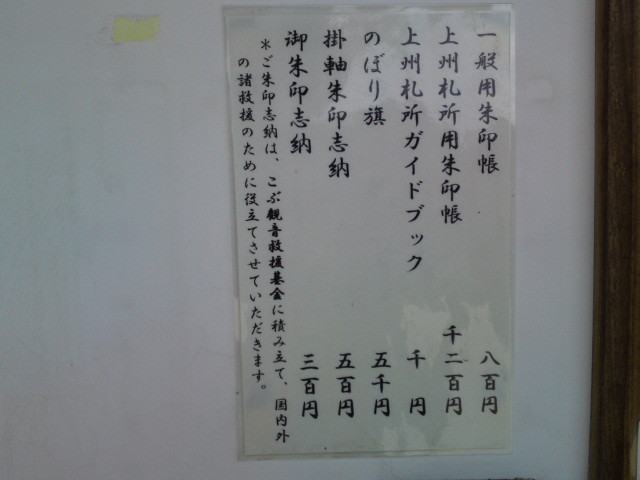 一般用朱印帳 八百円
上州札所用朱印帳 千二百円
上州札所ガイドブック 千円
のぼり旗 五千円
掛軸朱印志納 五百円
御朱印志納 三百円
＊ご朱印志納は、こぶ観音救援基金に積み立て、国内外
の諸救援のために役立てさせていただきます。